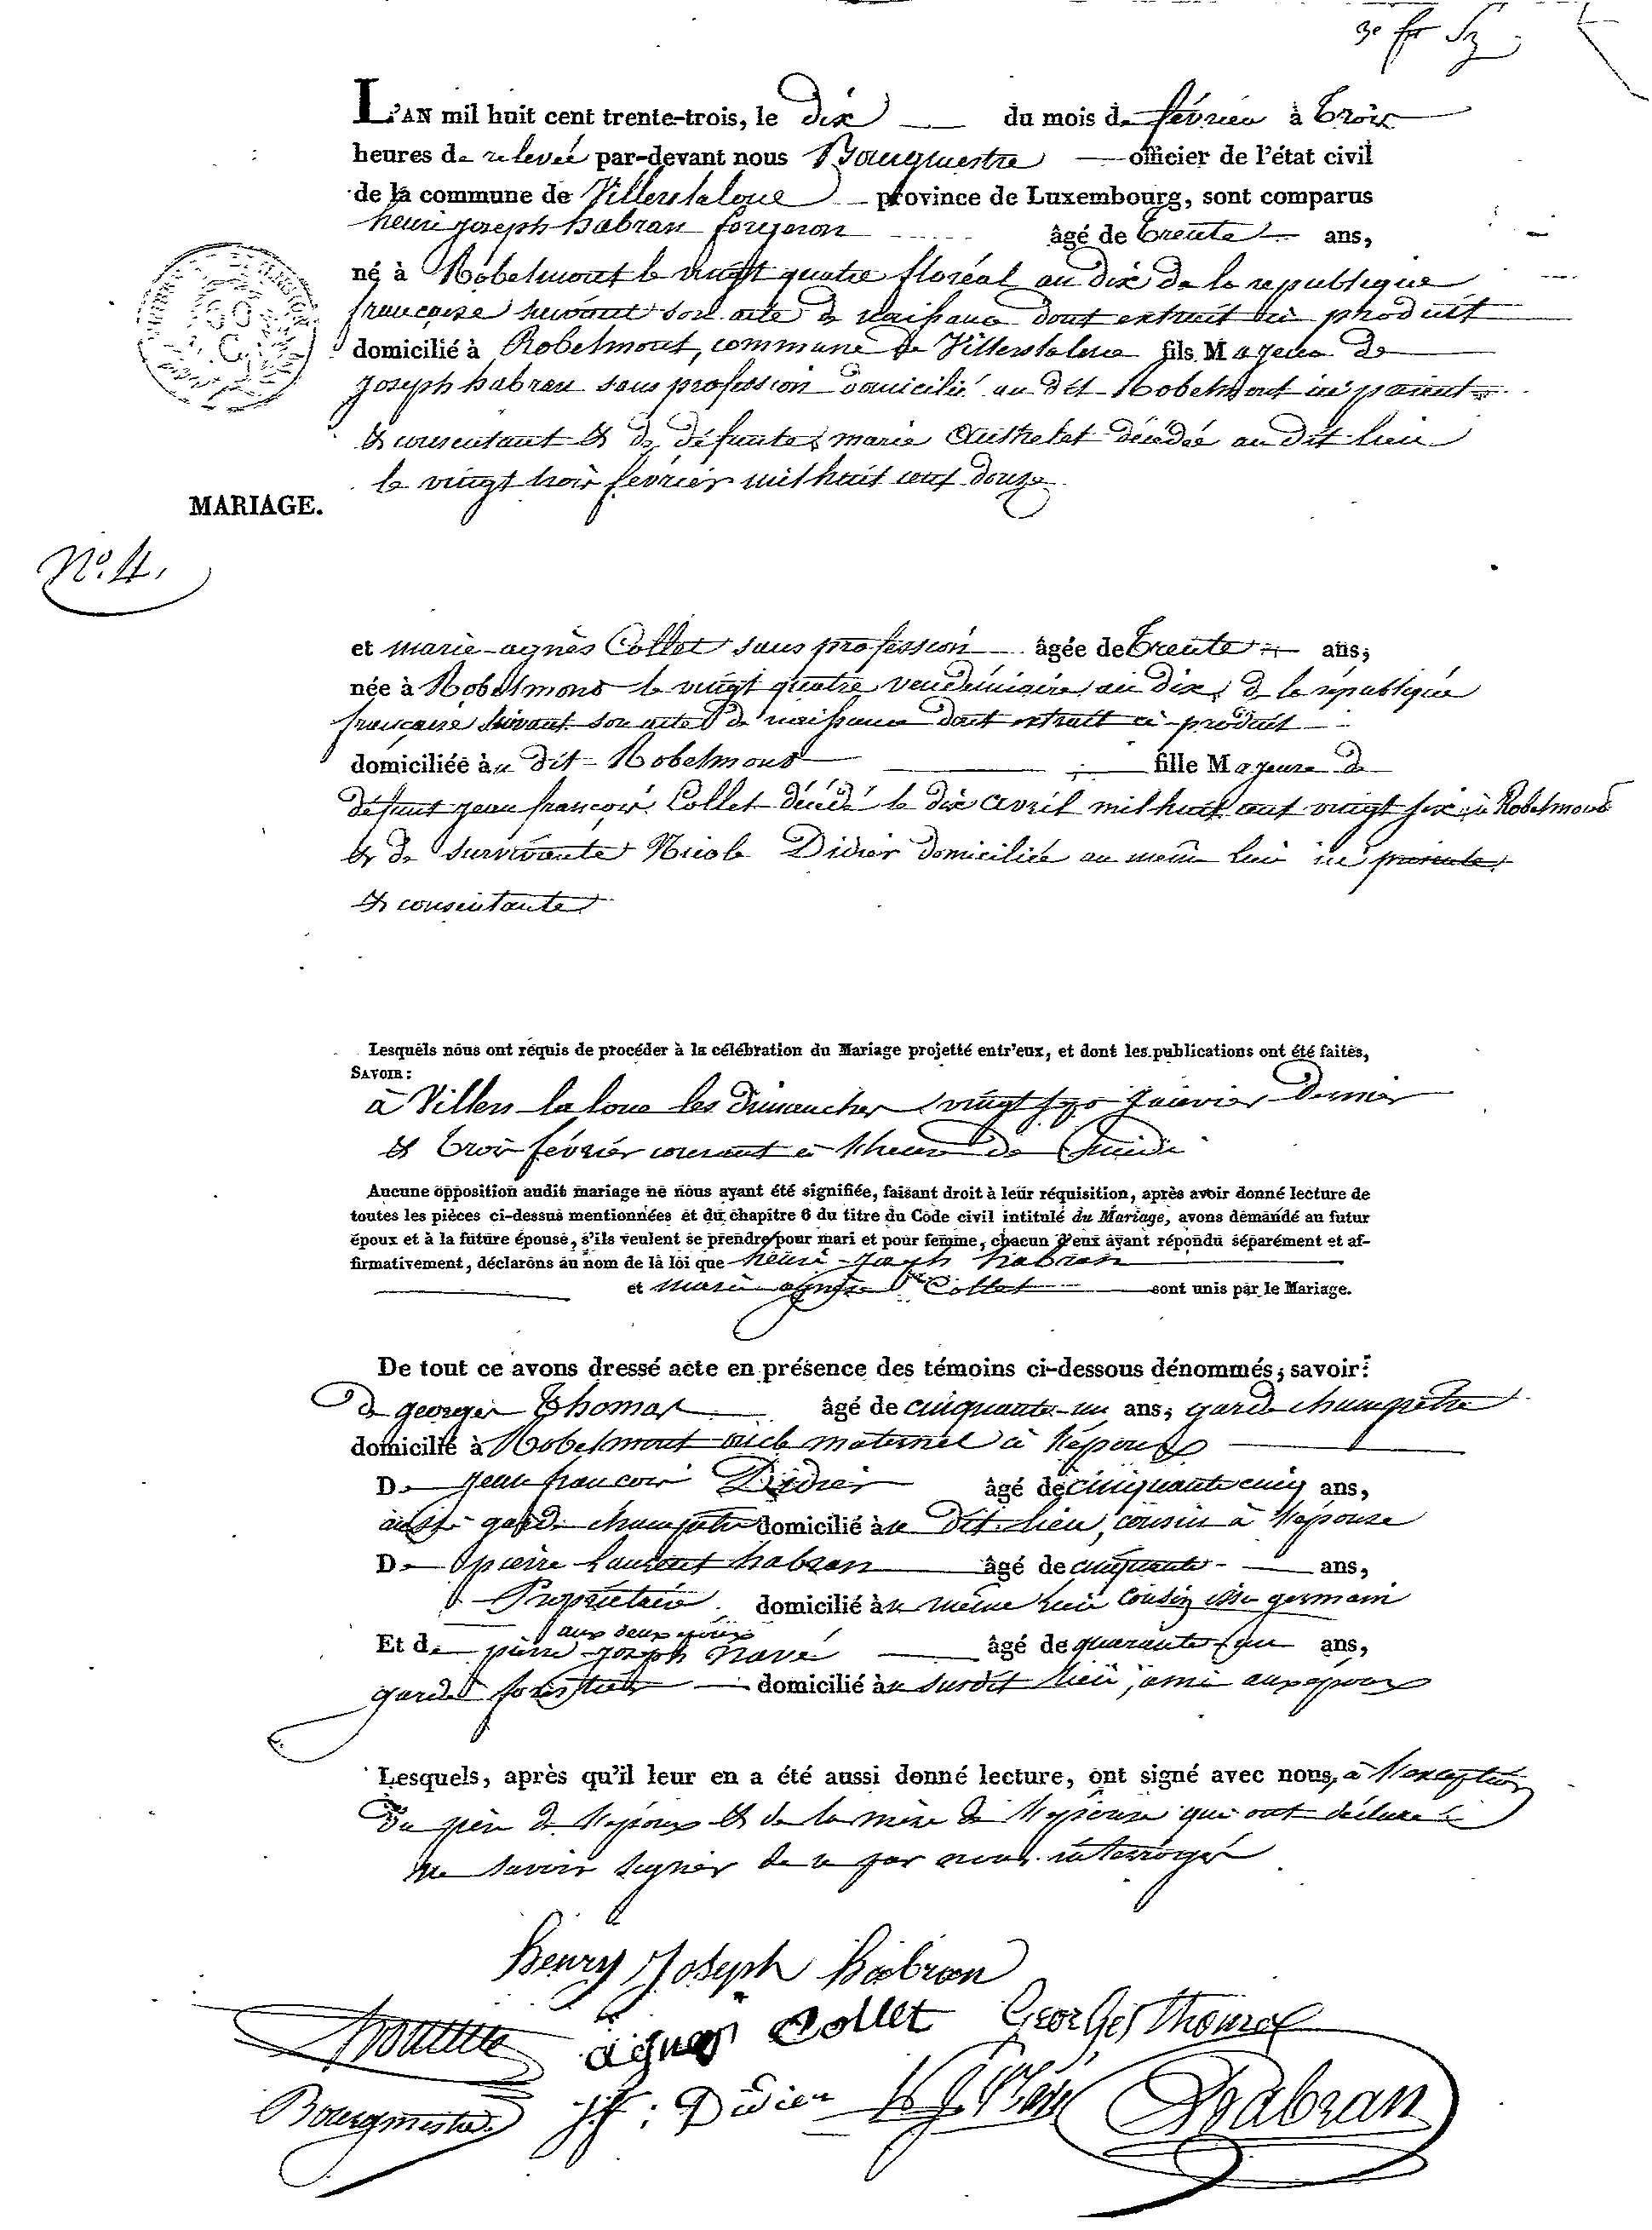 L'AN mil huit cent trente-trois, le dix du mois de février à trois
heures de relevée par-devant nous Bourgmestre officier de l'état civil
de la commune de Villerslaloue province de Luxembourg, sont comparus
henri joseph habran forgeron âgé de trente ans,
né à Robelmont le vingt quatre floréal an dix de la republique
française suivant son acte de naissance dont extrait ici produit
domicilié à Robelmont, commune de Villerslaloue fils Majeur de
joseph habran sans profession domicilié au dit Robelmont ici présent
& consentant & de défunte marie décédée au dit lieu
le vingt trois février mil huit cent douze
MARIAGE.
N°. 4.
et marie-agnès Collet sans profession âgée de trente ans;
née à Robelmont le vingt quatre vendémiaire an dix de la république
française suivant son acte de naissance dont extrait ci-produit
domiciliée à u dit Robelmont fille Majeure de
défunt jean françois Collet décédé le dix avril mil huit cent vingt six à Robelmont
& de survivante Nicole Didier domiciliée au même lieu ici présente
& consentante
Lesquels nous ont requis de procéder à la célébration du Mariage projetté entr'eux, et dont les publications ont été faites,
SAVOIR:
à Villers-la loue les dimanches vingt sept janvier dernier
& trois février courant à l'heure de midi
Aucune opposition audit mariage ne nous ayant été signifiée, faisant droit à leur réquisition, après avoir donné lecture de
toutes les pièces ci-dessus mentionnées et du chapitre 6 du titre du Code civil intitulé du Mariage, avons demandé au futur
époux et à la future épouse, s'ils veulent se prendre pour mari et pour femme, chacun d'eux ayant répondu séparément et af-
firmativement, déclarons au nom de la loi que henri-joseph habran
et marie agnès Collet sont unis par le Mariage.
De tout ce avons dressé acte en présence des témoins ci-dessous dénommés; savoir:
de georges Thomas âgé de cinquante-un ans; garde champêtre
domicilié à Robelmont oncle maternel à l'époux
De jean françois Didier âgé de cinquante cinq ans,
aussi garde champêtre domicilié à u dit lieu, cousin à l'épouse
De pierre Laurent habran âgé de cinquante ans,
Propriétaire domicilié à u même lieu cousin issu germain
aux deux époux
Et de pierre-joseph âgé de quarante un ans,
garde forestier domicilié à u susdit lieu, ami aux époux
Lesquels, après qu'il leur en a été aussi donné lecture, ont signé avec nous, à l'exception
du père de l'époux & de la mère de l'épouse qui ont déclaré
ne savoir signer de ce par nous interrogés
henry joseph habran
agnes Collet Georges Thomas
Bourgmestre J.f: Didier Habran